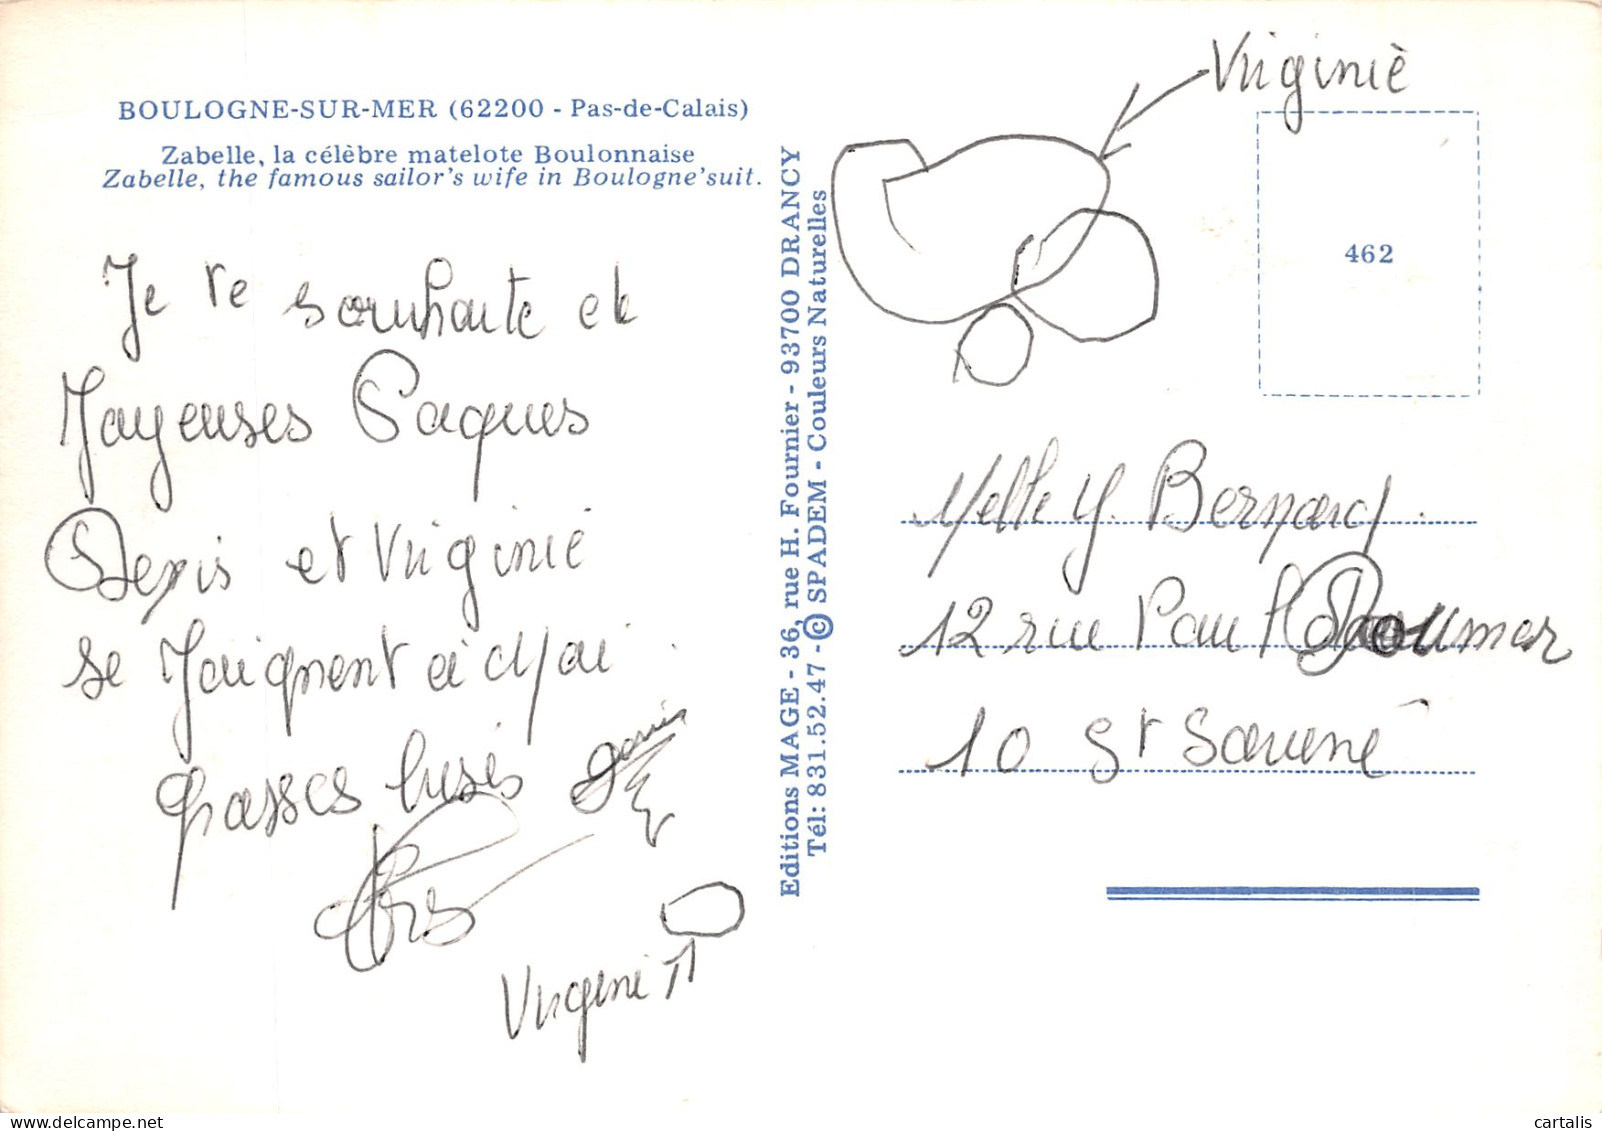 BOULOGNE-SUR-MER (62200 - Pas-de-Calais)
Zabelle, la célèbre matelote Boulonnaise
Zabelle, the famous sailor's wife in Boulogne'suit.
Je te souhaite de
Joyeuses Paques
Denis et Virginie
se Joignent à Moi
grosses bises Denis
Virginie
Editions MAGE - 36, rue H. Fournier - 93700 DRANCY
Tél: 831.52.47 - © SPADEM - Couleurs Naturelles
Virginie
462
Melle Y. Bernard
12 rue Paul Doumer
10 St Savine